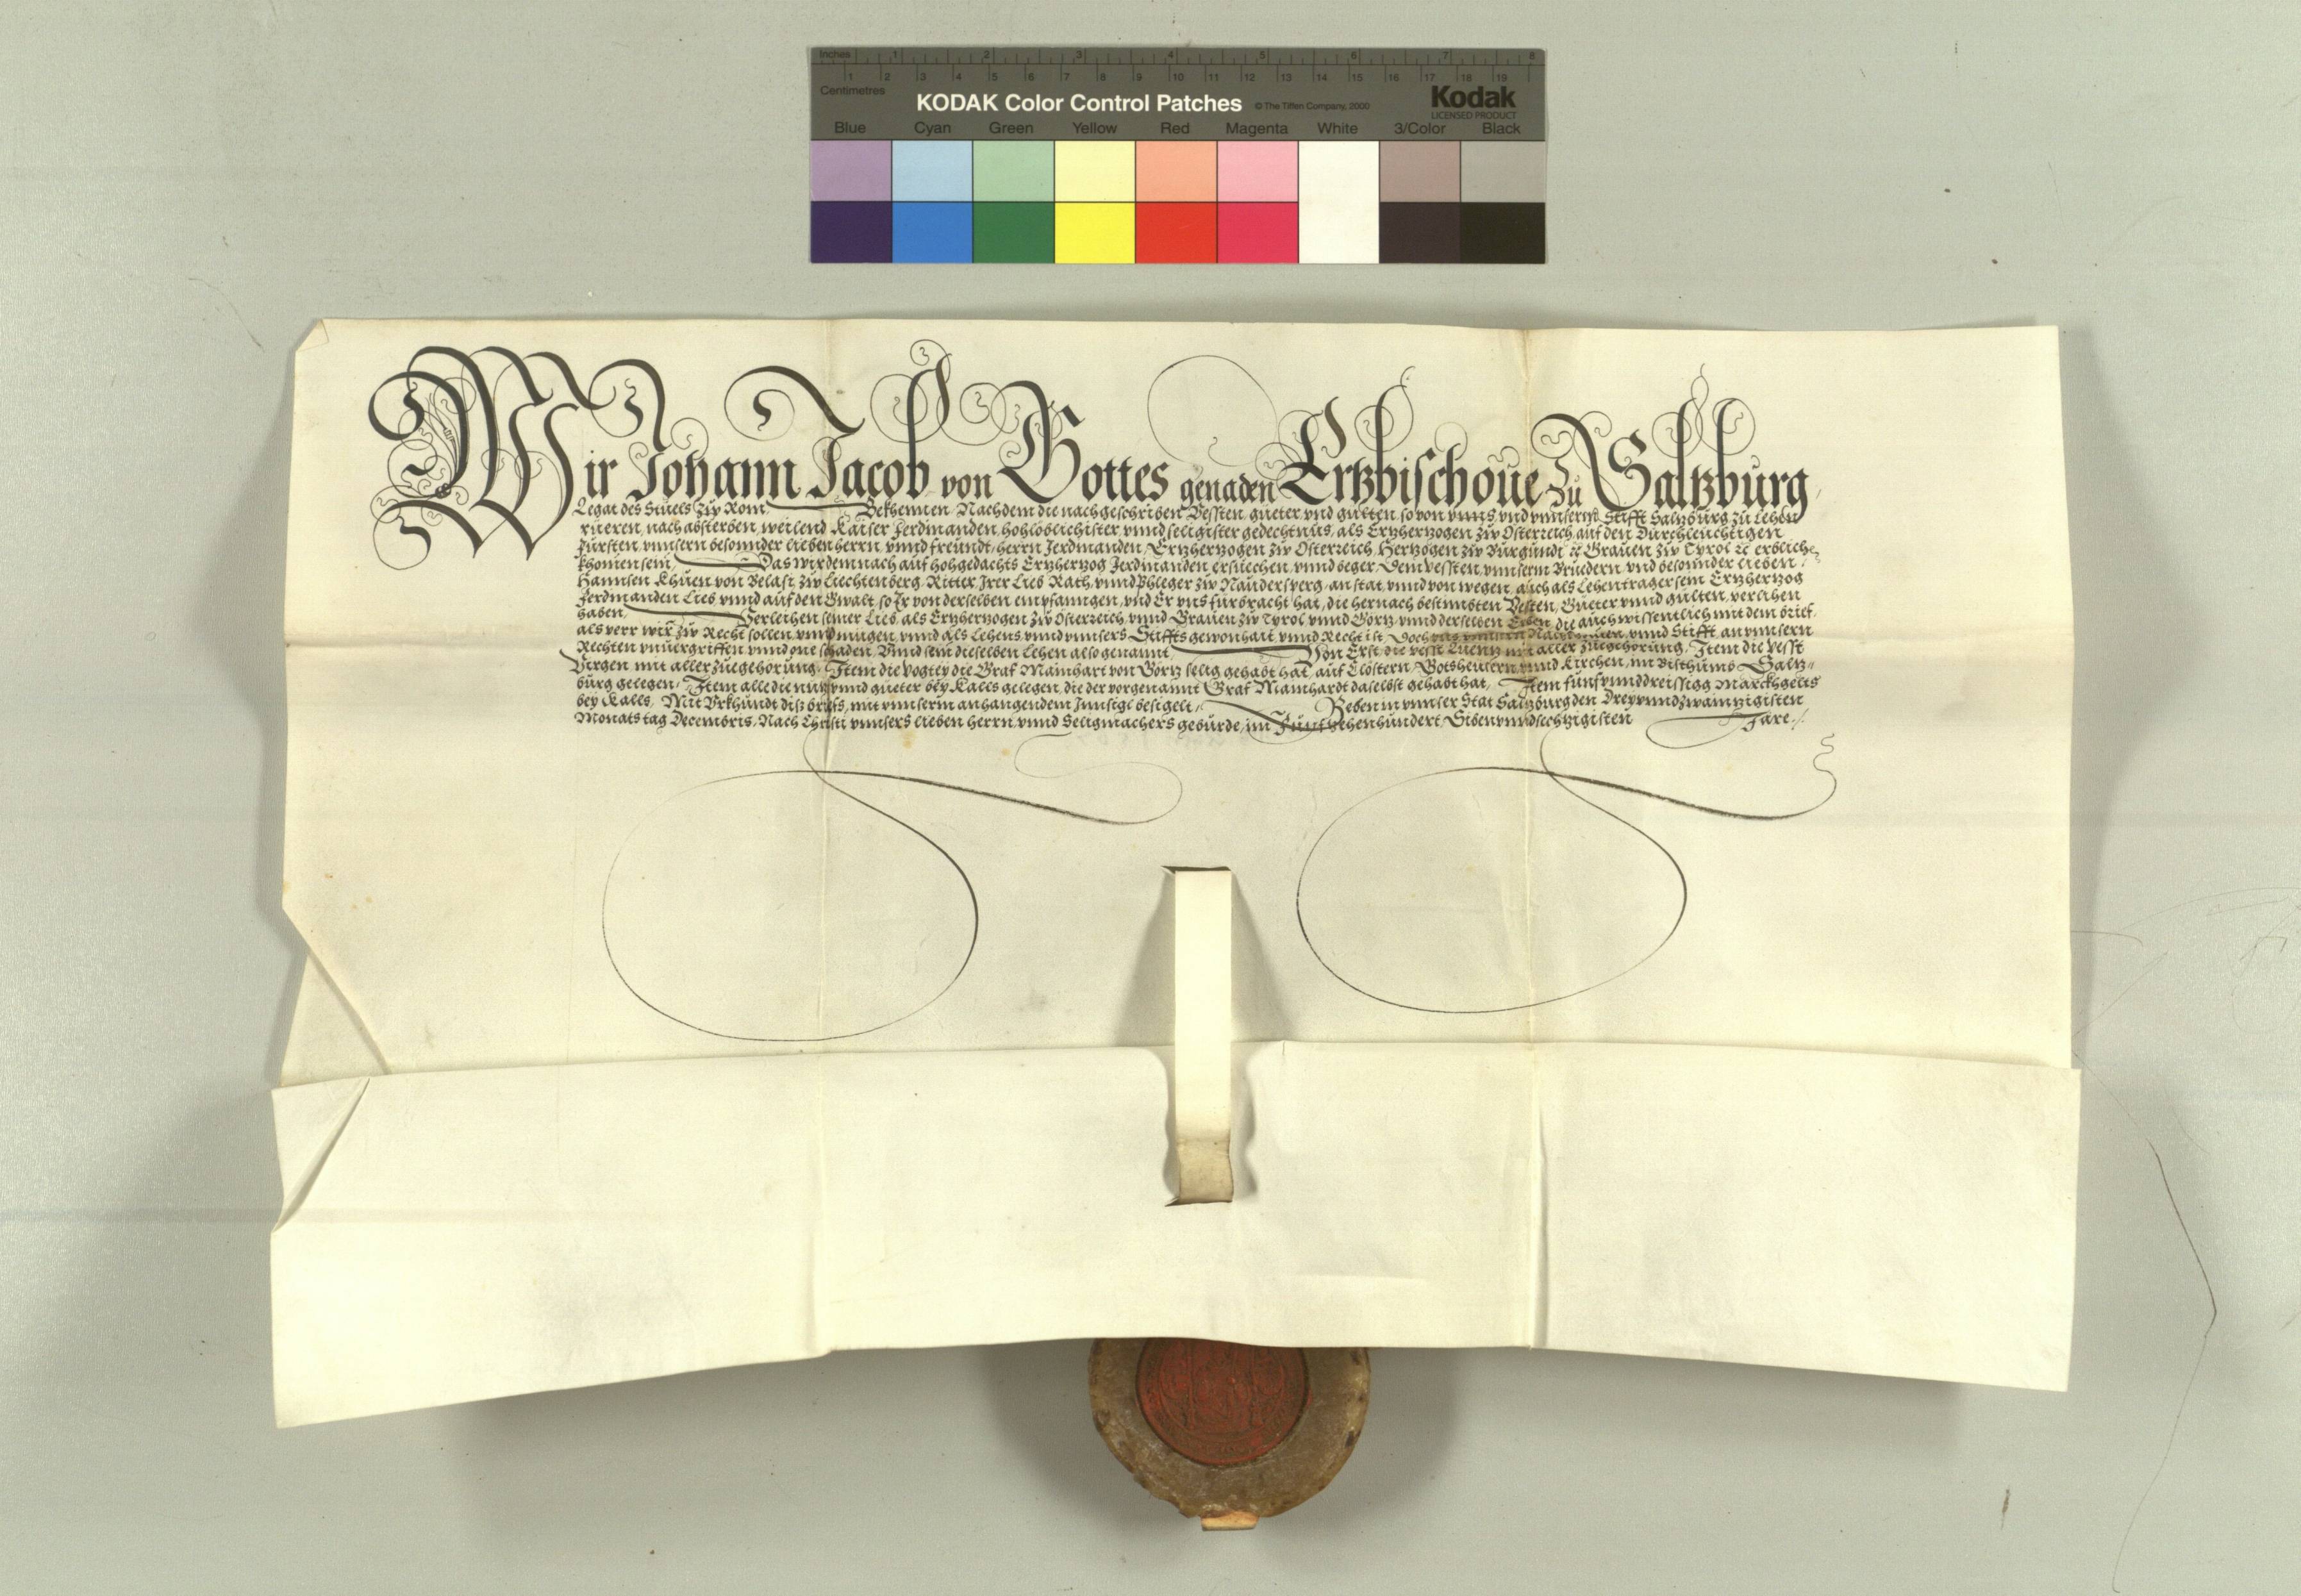 Inches 1 2 3 4 5 6 7 8
1 2 3 4 5 6 7 8 9 10 11 12 13 14 15 16 17 18 19
Centimetres
KODAK Color Control Patches © The Tiffen Company, 2000 Kodak
LICENSED PRODUCT
Blue Cyan Green Yellow Red Magenta White 3/Color Black
Wir Johann Jacob von Gottes genaden Ertzbischoue zu Saltzburg
Legat des Stuels zw Rom Bekhennen Nachdem die nachgeschriben Vessten, gueter vnd gulten, so von vnns vnd vnnserm Stifft Saltzburg zu Lehen
rueren, nach absterben, weilend Kaiser Ferdinanden, hohloblichister vnnd seligister gedechtnus, als Ertzhertzogen zw Osterreich auf den Durchleuchtigen
Fürsten, vnnsern besonnder lieben herrn vnnd freundt, herrn Ferdinanden, Ertzhertzogen zw Osterreich, Hertzogen zw Burgundi ꝛc Grauen zw Tyrol ꝛc erblich
khomen sein, Das wir demnach auf hohgedachts Ertzhertzog Ferdinanden, ersuechen, vnnd beger, Dem vessten, vnnserm besonnder lieben
Hannsen Khuen von Belasi zw Liechtenberg, Ritter, Irer Lieb Rath, vnnd Phleger zw Naudersperg, an stat, vnnd von wegen, auch als Lehentrager sein Ertzhertzog
Ferdinanden Lieb vnnd auf den Gwalt, so Er von derselben empfanngen, vnd Er vns fürbracht hat, die hernach bestimbten Vesten, Gueter vnnd gulten, verlihen
haben, Verleihen seiner Lieb, als Ertzhertzogen zw Osterreich, vnnd Grauen zw Tyrol vnnd Gortz, vnnd derselben Erben, die auch wissentlich mit dem brief,
als verr wir zw Recht sollen, vnnd mugen, vnnd als Lehens, vnnd vnnsers Stiffts gewonhait vnnd Recht ist, Doch vns vnnsern Nachkomen, vnnd Stifft, an vnnsern
Rechten vnuergriffen, vnnd one schaden, Vnnd sein dieselben Lehen also genannt, Von Erst die vesst Luentz mit aller zuegehorung, Item die vesst
Virgen mit aller zuegehorung, Item die Vogtey die Graf Mainhart von Gortz selig gehabt hat, auf Clöstern, Gotsheusern, vnnd Kirchen, im Bisthumb Saltz-
burg gelegen, Item alle die nutz vnnd gueter bey Kalls gelegen, die der vorgenannt Graf Mainhardt daselbst gehabt hat, Item funfvnnddreissigg Marckhgelts
bey Kalls, Mit Vrkhundt diss briefs, mit vnnserm anhangendem Innsigl besigelt, Geben in vnnser Stat Saltzburg den Dreyvnndzwaintzigisten
Monats tag Decembris, Nach Christi vnnsers lieben herrn vnnd Seligmachers geburde, im Funftzehenhundert Sibenvnndsechtzigisten Jare.